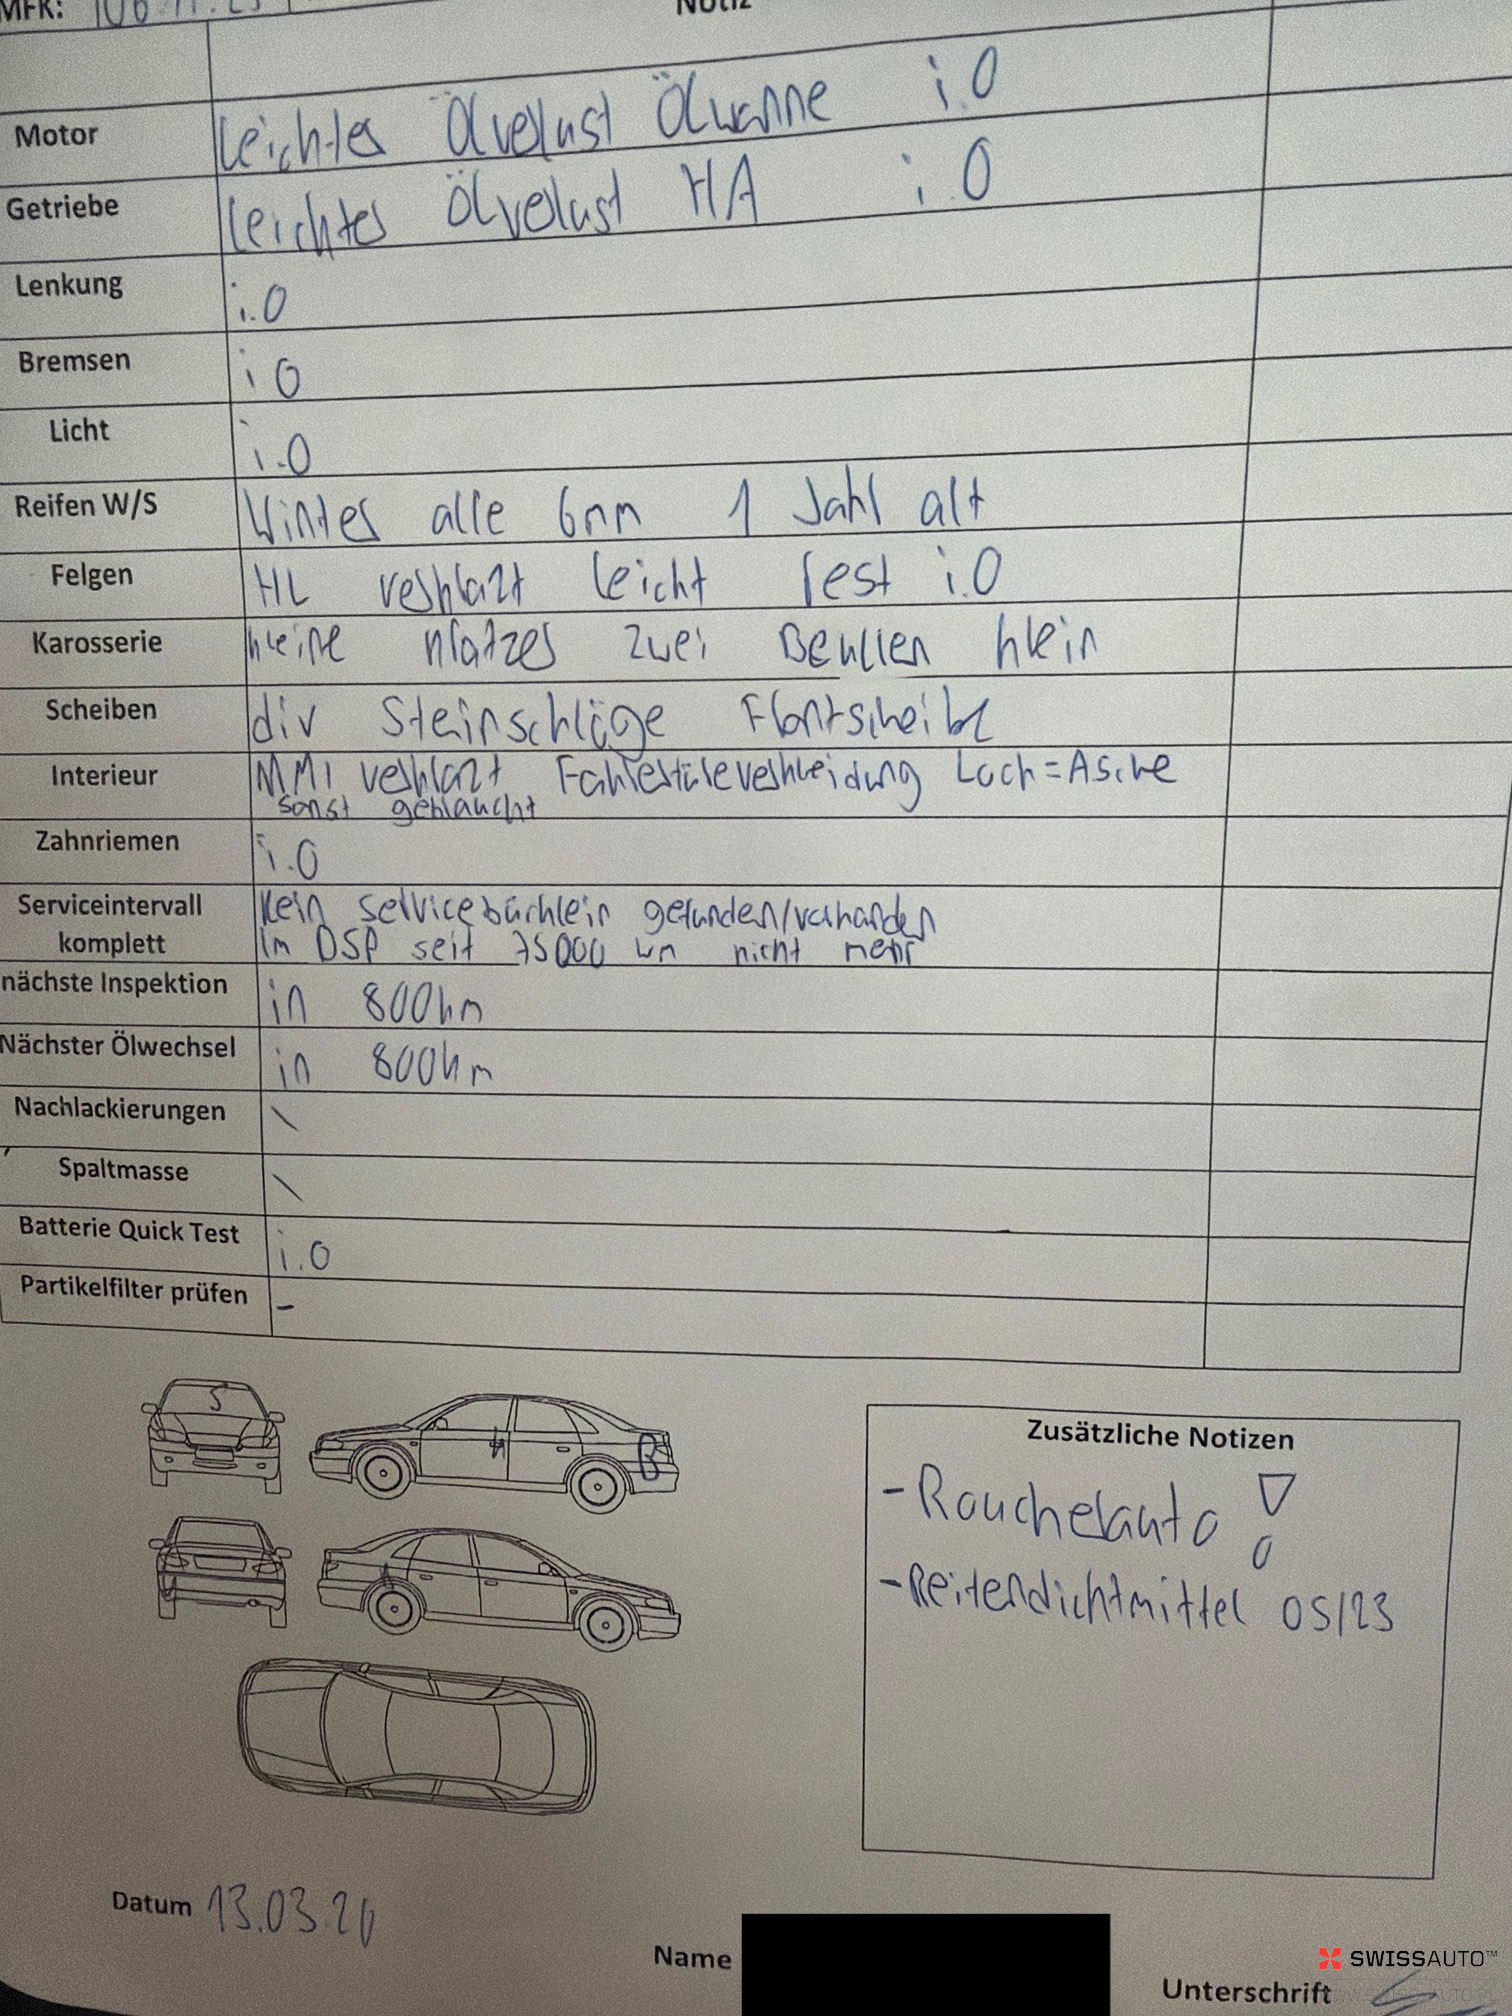 MFK: 06.11.23
Notiz
Motor leichtes Ölverlust Ölwanne i.O
Getriebe leichtes Ölverlust HA i.O
Lenkung i.O
Bremsen i O
Licht i.O
Reifen W/S Winter alle 6mm 1 Jahr alt
Felgen HL verkratzt leicht rest i.O
Karosserie kleine kratzer zwei Beullen klein
Scheiben div Steinschläge Frontscheibe
Interieur MMI verkratzt Fahrertüreverkleidung Loch = Asche
sonst gebraucht
Zahnriemen i.O
Serviceintervall Kein servicebüchlein gefunden/vorhanden
komplett Im DSP seit 75000 km nicht mehr
nächste Inspektion in 800km
Nächster Ölwechsel in 800km
Nachlackierungen \
Spaltmasse \
Batterie Quick Test i.O
Partikelfilter prüfen -
S
B
Zusätzliche Notizen
- Raucherauto !
- Reifendichtmittel 05/23
Datum 13.03.26
Name
SWISSAUTO™
Unterschrift